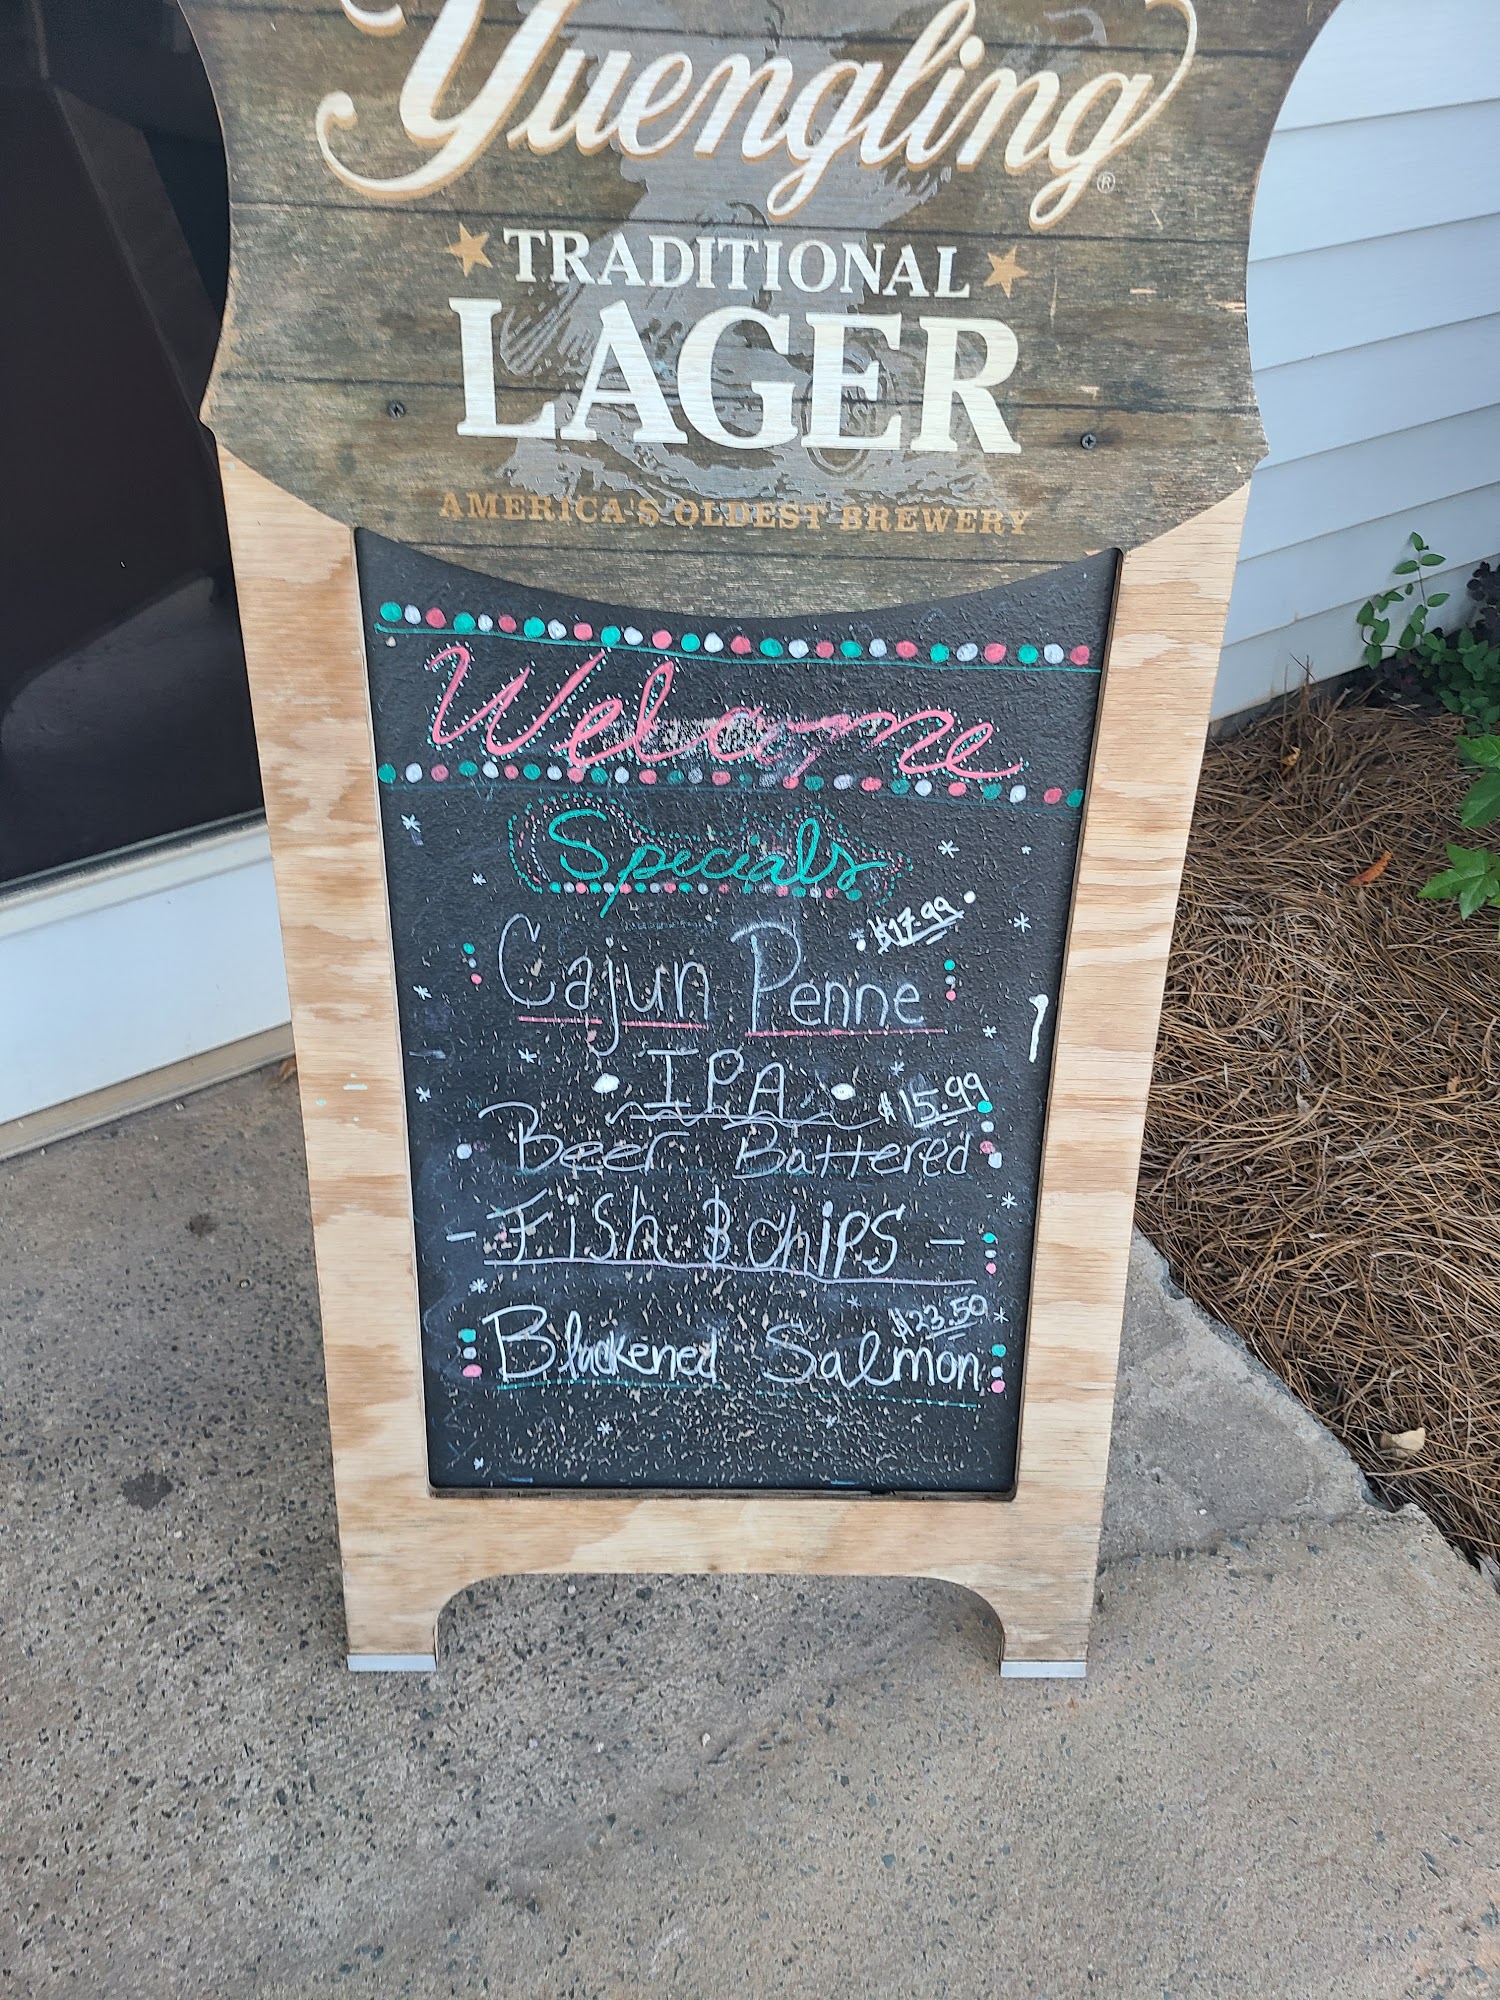 Yuengling®
TRADITIONAL
LAGER
AMERICA'S OLDEST BREWERY
Welcome
Specials
$17.99
Cajun Penne
IPA
$15.99
Beer Battered
Fish & chips
$23.50
Blackened Salmon